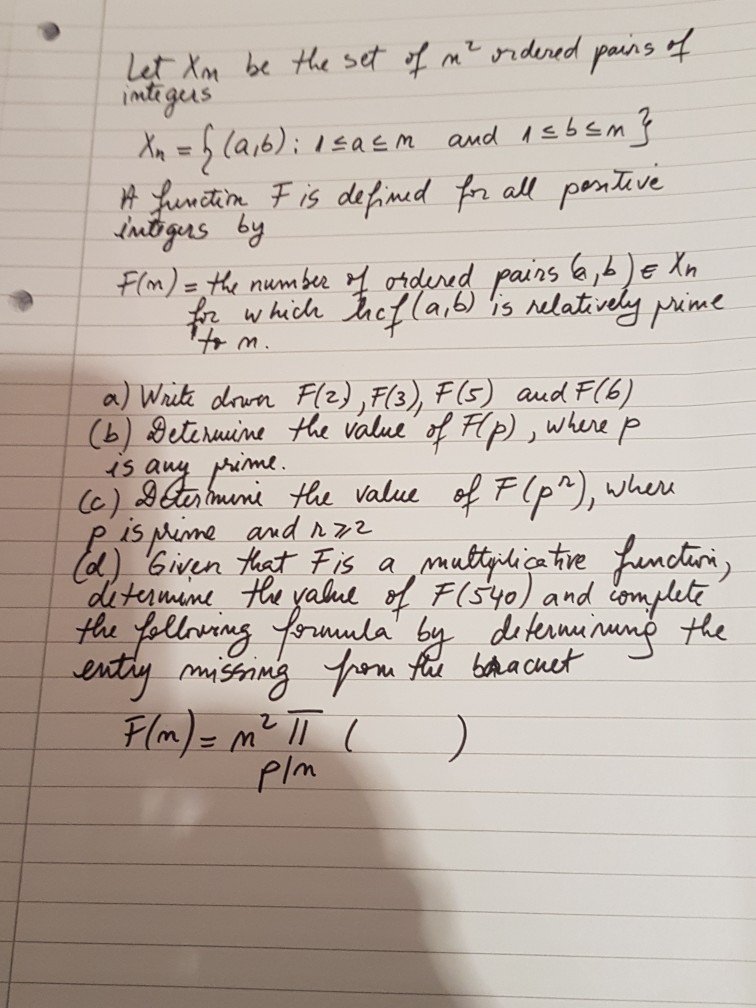 Let Xn be the set of n² ordered pairs of
integers
Xn = { (a,b) : 1 ≤ a ≤ n and 1 ≤ b ≤ n }
A function F is defined for all positive
integers by
F(n) = the number of ordered pairs (a,b) ∈ Xn
for which hcf(a,b) is relatively prime
to n.
a) Write down F(2), F(3), F(5) and F(6)
(b) Determine the value of F(p), where p
is any prime.
(c) Determine the value of F(pʳ), where
p is prime and r ≥ 2
(d) Given that F is a multiplicative function,
determine the value of F(540) and complete
the following formula by determining the
entry missing from the bracuet
F(n) = n² Π ( )
p|n